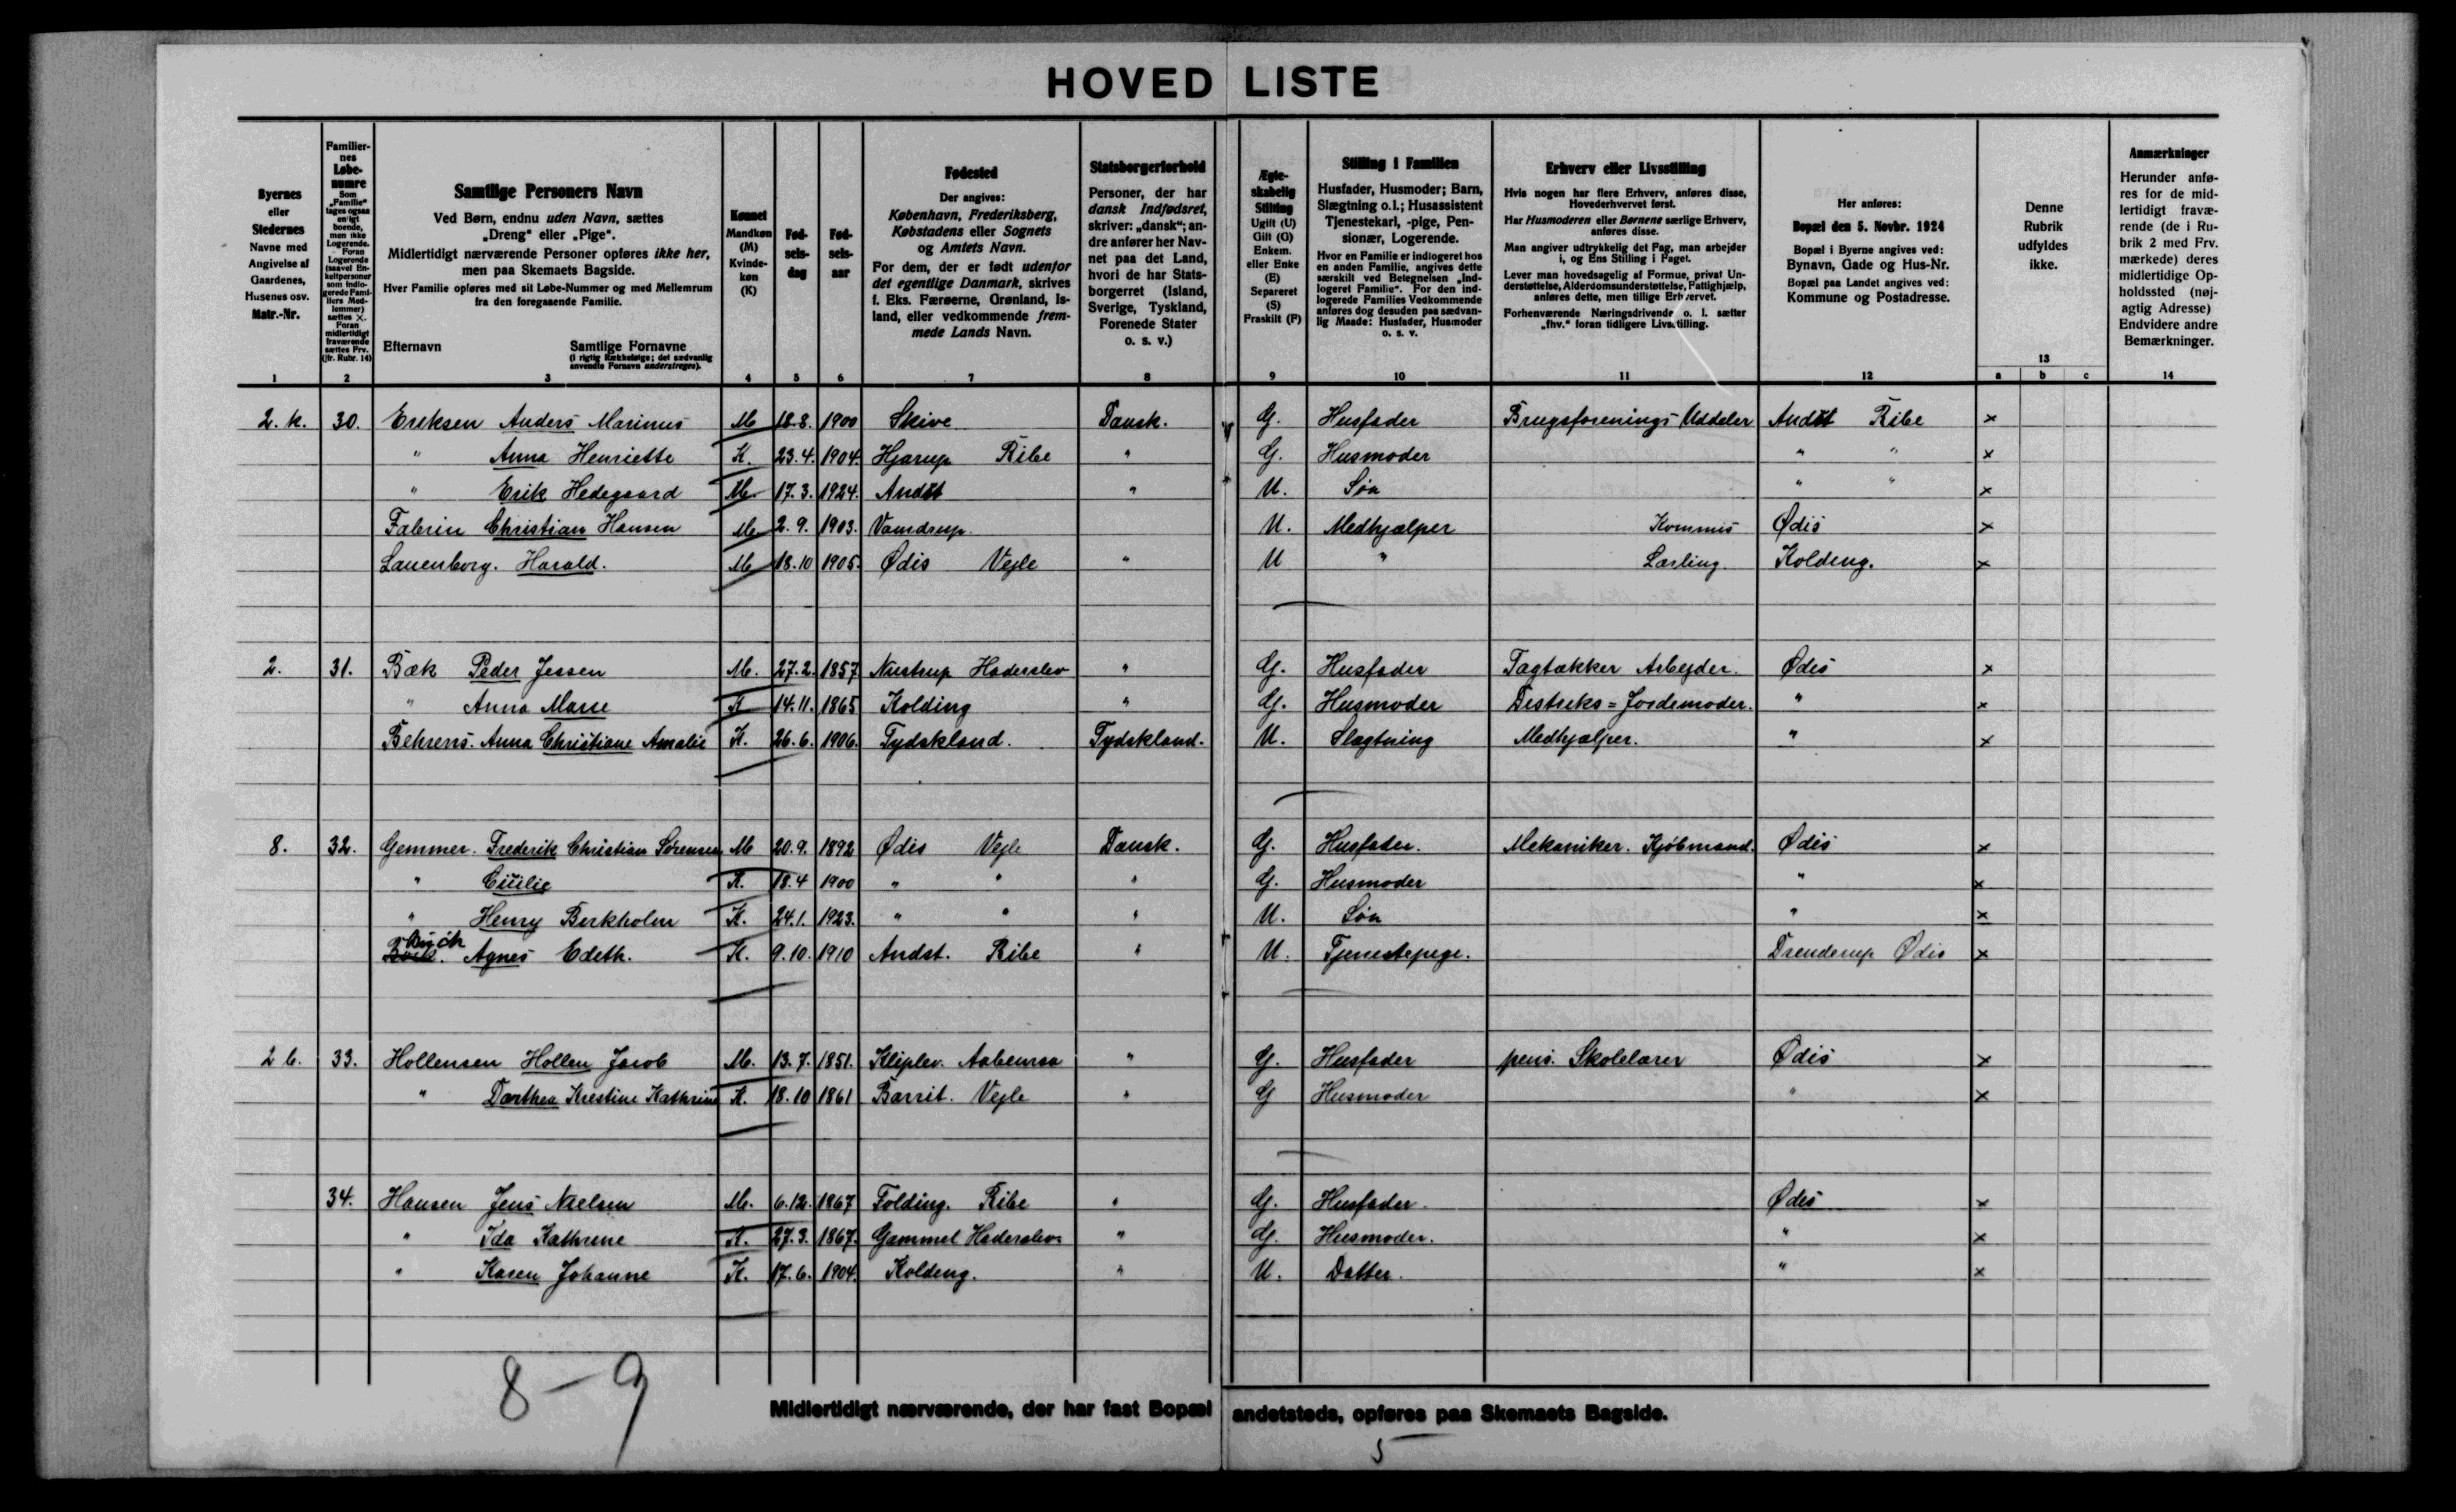 HOVED LISTE
Byernes eller Stedernes Navne med Angivelse af Gaardenes, Husenes osv. Matr.-Nr.
Familiernes Løbenumre Som „Familie“ tages ogsaa enligt boende, men ikke Logerende. Foran Logerende (saavel Enkeltpersoner som indlogerede Familiers Medlemmer) sættes X. Foran midlertidigt fraværende sættes Frv. (jfr. Rubr. 14)
Samtlige Personers Navn
Ved Børn, endnu uden Navn, sættes „Dreng“ eller „Pige“.
Midlertidigt nærværende Personer opføres ikke her, men paa Skemaets Bagside.
Hver Familie opføres med sit Løbe-Nummer og med Mellemrum fra den foregaaende Familie.
Efternavn Samtlige Fornavne
(i rigtig Rækkefølge; det sædvanlig anvendte Fornavn understreges).
Kønnet Mandkøn (M) Kvindekøn (K)
Fødselsdag
Fødselsaar
Fødested
Der angives: København, Frederiksberg, Købstadens eller Sognets og Amtets Navn.
For dem, der er født udenfor det egentlige Danmark, skrives f. Eks. Færøerne, Grønland, Island, eller vedkommende fremmede Lands Navn.
Statsborgerforhold
Personer, der har dansk Indfødsret, skriver: „dansk“; andre anfører her Navnet paa det Land, hvori de har Statsborgerret (Island, Sverige, Tyskland, Forenede Stater o. s. v.)
Ægteskabelig Stilling Ugift (U) Gift (G) Enkem. eller Enke (E) Separeret (S) Fraskilt (F)
Stilling i Familien
Husfader, Husmoder; Barn, Slægtning o.l.; Husassistent Tjenestekarl, -pige, Pensionær, Logerende.
Hvor en Familie er indlogeret hos en anden Familie, angives dette særskilt ved Betegnelsen „Indlogeret Familie“. For den indlogerede Familes Vedkommende anføres dog desuden paa sædvanlig Maade: Husfader, Husmoder o. s. v.
Erhverv eller Livsstilling
Hvis nogen har flere Erhverv, anføres disse, Hovederhvervet først.
Har Husmoderen eller Børnene særlige Erhverv, anføres disse.
Man angiver udtrykkelig det Fag, man arbejder i, og Ens Stilling i Faget.
Lever man hovedsagelig af Formue, privat Understøttelse, Alderdomsunderstøttelse, Fattighjælp, anføres dette, men tillige Erhvervet.
Forhenværende Næringsdrivende o. l. sætter „fhv.“ foran tidligere Livsstilling.
Her anføres:
Bopæl den 5. Novbr. 1924
Bopæl i Byerne angives ved: Bynavn, Gade og Hus-Nr.
Bopæl paa Landet angives ved: Kommune og Postadresse.
Denne Rubrik udfyldes ikke.
Anmærkninger
Herunder anføres for de midlertidigt fraværende (de i Rubrik 2 med Frv. mærkede) deres midlertidige Opholdssted (nøjagtig Adresse) Endvidere andre Bemærkninger.
1 2 3 4 5 6 7 8 9 10 11 12 13 a b c 14
2.k. 30. Eriksen Anders Marinus M 18.8. 1900 Skive Dansk. G. Husfader Brugsforenings Uddeler Andst Ribe x
" Anna Henriette K. 23.4. 1904. Hjarup Ribe " G. Husmoder " " x
" Erik Hedegaard M. 17.3. 1924. Andst " U. Søn " " x
Falerin Christian Hansen M. 2.9. 1903. Vamdrup. U. Medhjælper Kommis Ødis x
Lauenborg. Harald. M 18.10 1905. Ødis Vejle " U " Lærling. Kolding. x
2. 31. Bæk Peder Jessen M. 27.2. 1857 Nustrup Haderslev " G. Husfader Tagtækker Arbejder. Ødis x
" Anna Marie K 14.11. 1865 Kolding " G. Husmoder Distrikts=Jordemoder. " x
Behrens. Anna Christiane Amalie K. 26.6. 1906. Tydskland. Tydskland. U. Slægtning Medhjælper. " x
8. 32. Gemmer. Frederik Christian Sørensen M 20.9. 1892 Ødis Vejle Dansk. G. Husfader. Mekaniker. Kjøbmand. Ødis x
" K. 18.4 1900 " " " G. Husmoder " x
" Henry Birkholm K. 24.1. 1923. " " " U. Søn " x
Agnes Edith. K. 9.10. 1910 Andst. Ribe " U. Tjenestepige. Drenderup Ødis x
2 b. 33. Hollensen Hollen Jacob M. 13.7. 1851. Kliplev. Aabenraa " G. Husfader pens. Skolelærer Ødis x
" Dorthea Kirestine Kathrine K. 18.10 1861 Barrit. Vejle " G Husmoder " x
34. Hansen Jens Nielsen M. 6.12. 1867 Folding. Ribe " G. Husfader. Ødis x
" Ida Kathrine K. 27.3. 1867. Gammel Haderslev " G. Husmoder. " x
" Karen Johanne K. 17.6. 1904. Kolding. " U. Datter. " x
8-9
Midlertidigt nærværende, der har fast Bopæl andetsteds, opføres paa Skemaets Bagside.
5